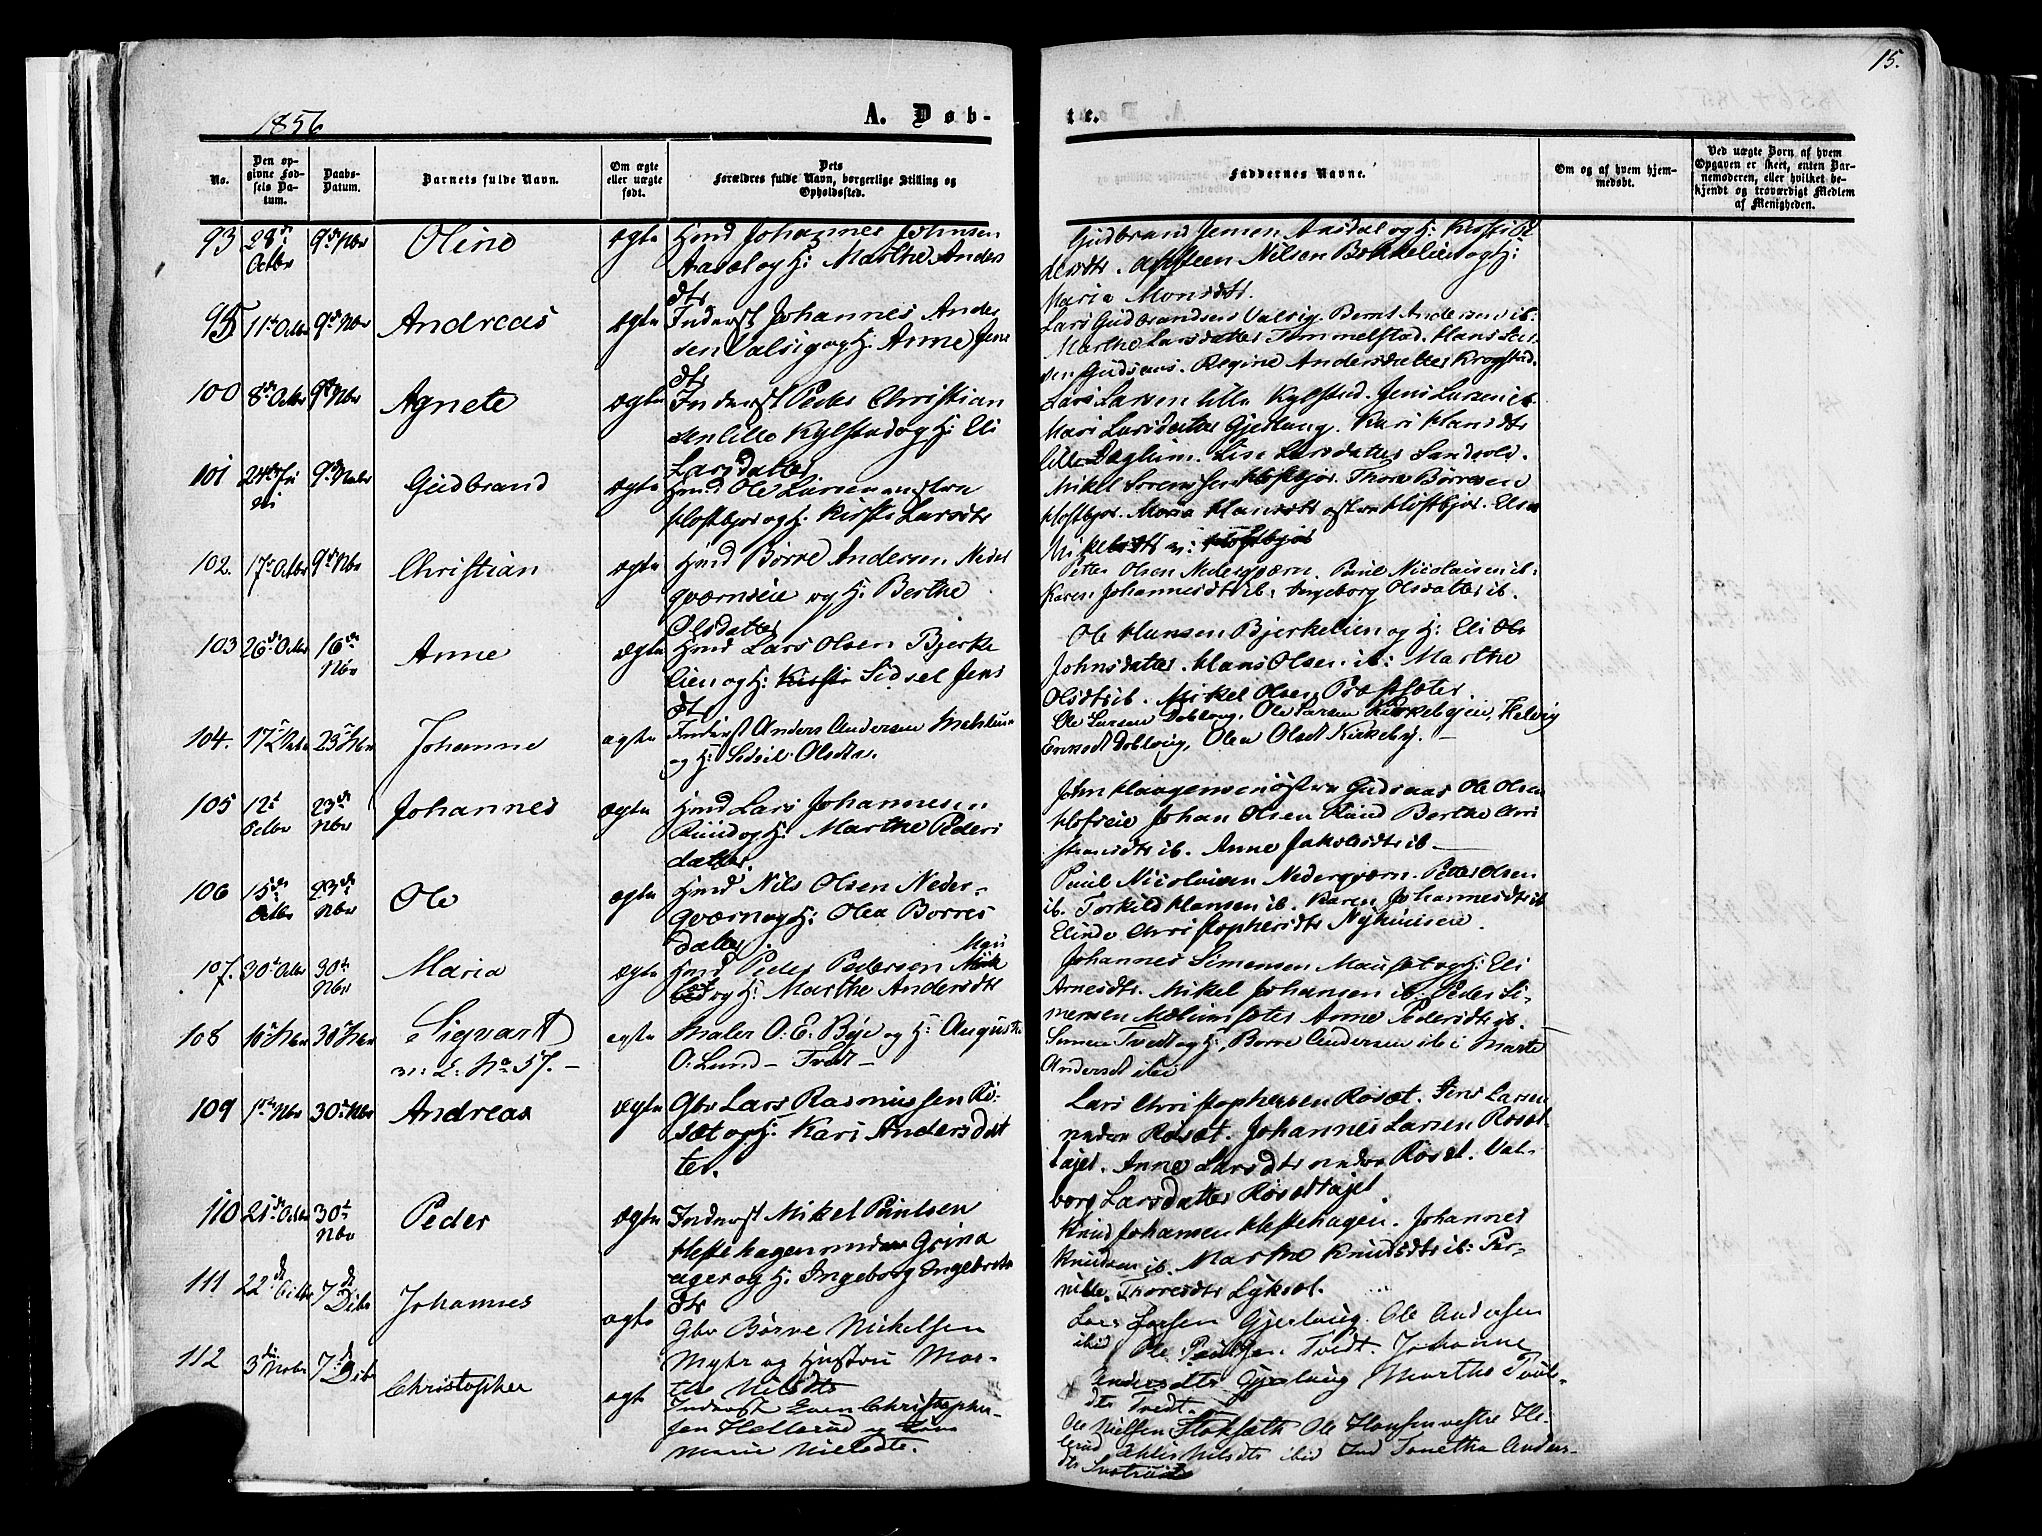 15.
1856
A. Døb-
te.
No.
Den op-
givne Fød-
sels Da-
tum.
Daabs-
Datum.
Barnets fulde Navn.
Om ægte
eller uægte
født.
Dets
Forældres fulde Navn, borgerlige Stilling og
Opholdssted.
Faddernes Navne.
Om og af hvem hjem-
medøbt.
Ved uægte Børn af hvem
Opgaven er skeet, enten Bar-
nemoderen, eller hvilket be-
kjendt og troværdigt Medlem
af Menigheden.
93 28 Octbr 9 Nbr Oline ægte Hmd Johannes Johnsen
Aasdal og H: Marthe Anders
dtr
Gudbrand Jensen Aasdal og H:
Nilsen Bekkelien og H:
Maria Monsdtr.
11t Octbr 9 Nbr Andreas ægte Inderst Johannes Ander
sen Valsig og H: Anne Jens
dtr
Lars Gudbrandsen Valsig. Bernt Andersen ib.
Marthe Larsdatter Tommelstad. Hans Lar
sen Gudsaas. Regine Andersdatter Krogstad.
100 8 Octbr 9 Nbr Agnete ægte Inderst Peder Christian
sen Lille Kylstad og H: Eli
Larsdatter
Lars Larsen Lille Kylstad. Jens Larsen ib.
Mari Larsdatter Gjerlaug. Kari Hansdtr
lille Dæhlum. Lise Larsdatter Sandvold.
101 9 Nbr Gudbrand ægte Hmd Ole Larsen
Hoftbjør og H: Kirsti Larsdtr
Mikel Sorensen Hoftbjør. Thore Børresen
Hoftbjør. Maria Hansdtr Hoftbjør. Elen
102. 17 Octbr 9 Nbr Christian ægte Hmd Børre Andersen Neder
qværnseie og H: Berthe
Olsdatter
Petter Olsen Nederqværn. Paul Nicolaisen ib:
Karen Johannesdtr ib. Ingeborg Olsdatter ib.
103 26 Octbr 16 Nbr Anne ægte Hmd Lars Olsen Bjerke
lien og H: Kirsti Sidsel Jens
dtr
Ole Hansen Bjerkelien og H: Eli Ols
Johnsdatter. Hans Olsen ib: Marthe
Olsdtr ib. Mikel Olsen Præstsæter.
104. 23 Nbr Johanne ægte Inderst Anders Andersen Mehlum
og H: Sidsel Olsdtr.
Ole Larsen Dobloug, Ole Larsen Kirkebyeie, Helvig
Dobloug, Olea Olsdt Kirkeby. —
105 12t Octbr 23 Nbr Johannes ægte Hmd Lars Johannesen
Ruud og H: Marthe Peders
datter.
John Haagensen østre Gudsaas Ole Olsen
Hofseie Johan Olsen Ruud Berthe Chri
stiansdtr ib. Anne Jakobsdtr ib —
106 15 Octbr 23 Nbr Ole ægte Hmd Nils Olsen Neder-
qværn og H: Olea Borres
datter.
Paul Nicolaisen Nederqværn. Peder Olsen
ib. Torkild Hansen ib. Karen Johannesdtr ib
Elinde Christophersdtr Nyhuusen.
107. 30t Octbr 30t Nbr Maria ægte Hmd Peder Pedersen Mau
og H: Marthe Andersdtr
Johannes Simensen Mausæt og H: Eli
Arnesdtr. Mikel Johansen ib. Peder Si-
mensen Mælumsæter Anne Pedersdtr ib.
108 10 Nbr 30 Nbr Sigvart
m: L: No 57. —
ægte Maler O. E. Bye og H: Auguste
O: Lund — Tvedt —
Simen Tvedt og H:, Borre Andersen ib: Marte
Andersdt
109 1ste Nbr 30 Nbr Andreas ægte Gbr Lars Rasmussen Rø-
sæt og H: Kari Andersdat
ter.
Lars Christophersen Røsæt. Jens Larsen
nedre Røsæt. Johannes Larsen Røsæt-
tajet. Anne Larsdtr nedre Røsæt. Val-
borg Larsdatter Røsættajet.
110 21 Octbr 30t Nbr Peder ægte Inderst Mikel Paulsen
Hestehagen under Grina
ager og H: Ingeborg Ingebrets
dtr
Knud Johansen Hestehagen. Johannes
Knudsen ib. Marthe Knudsdtr ib: Per-
nille Thoresdtr Lyksæt.
111 22de Octbr 7de Dcbr Johannes ægte
Gbr Børre Mickelsen
Myhr og Hustru Mar-
the Nilsdtr
Lars Larsen Gjerlaug. Ole Andersen
ibid Ole Paulsen Tvedt. Johanne
Andersdtr Gjerlaug Marthe Pauls-
dtr Tvedt.
112 3die Novbr 7de Dcbr Christopher ægte
Inderst Even Christopher-
sen Hellerud og
Marie Nilsdtr.
Ole Nielsen Stoksæth Ole Hansen vestre He-
lerud Nilsdtr ibid Anders-
dtr